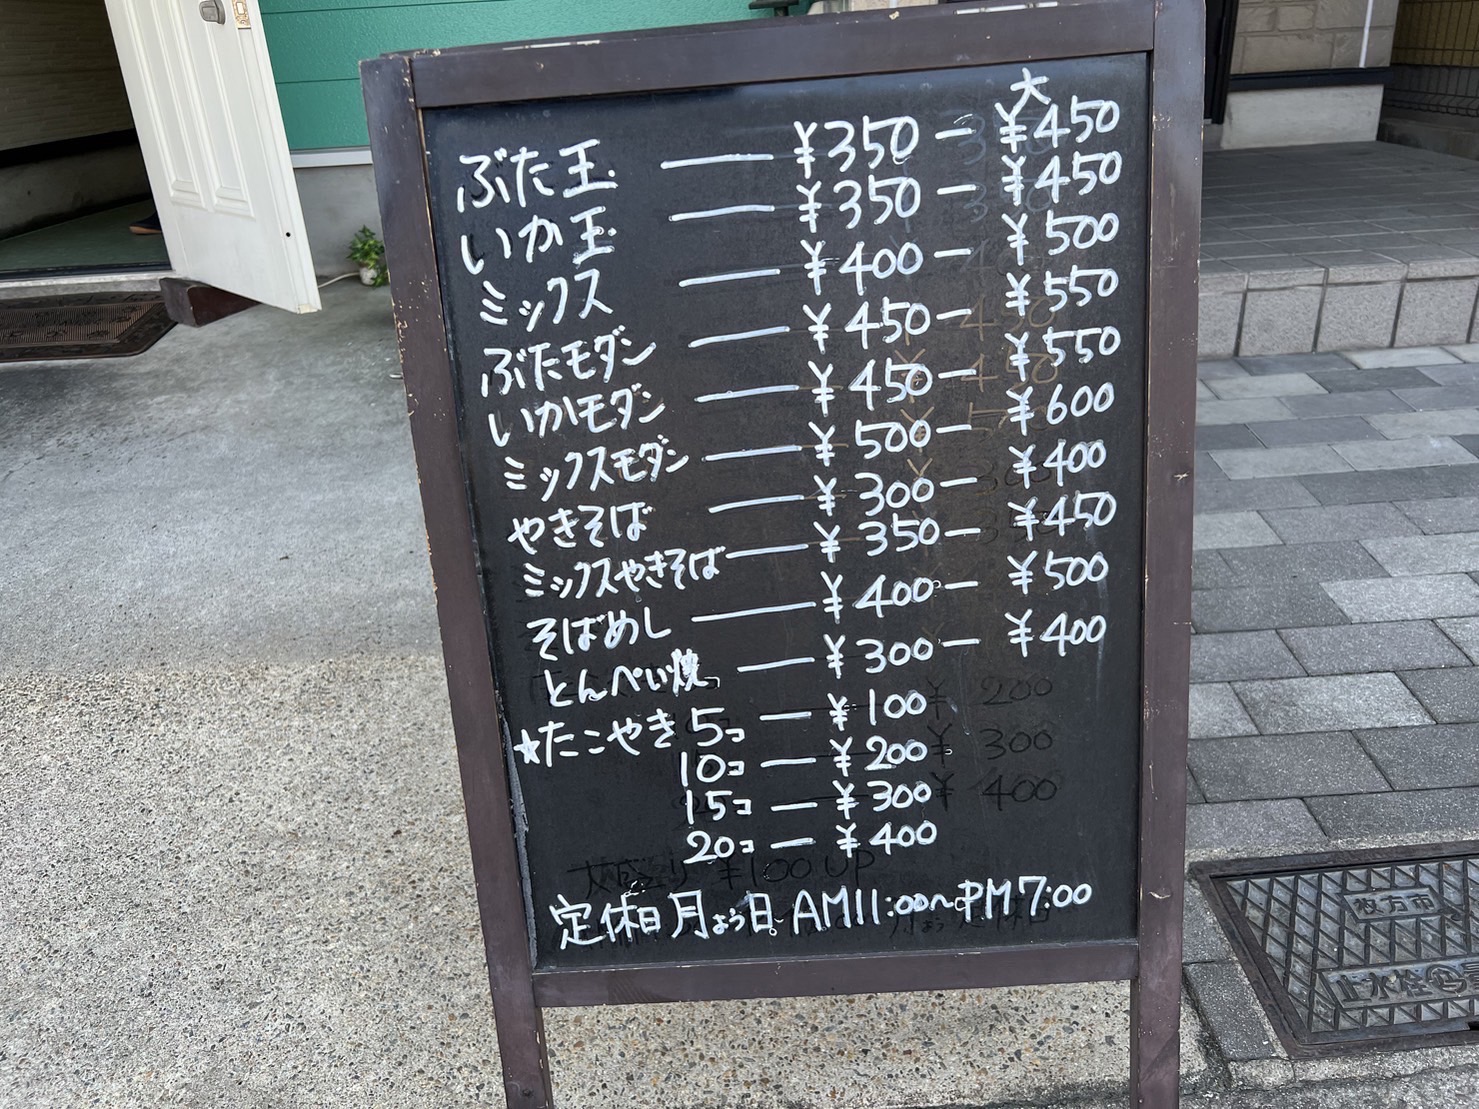 大
ぶた玉 ― ¥350 ― ¥450
いか玉 ― ¥350 ― ¥450
ミックス ― ¥400 ― ¥500
ぶたモダン ― ¥450 ― ¥550
いかモダン ― ¥450 ― ¥550
ミックスモダン ― ¥500 ― ¥600
やきそば ― ¥300 ― ¥400
ミックスやきそば ― ¥350 ― ¥450
そばめし ― ¥400 ― ¥500
とんぺい焼 ― ¥300 ― ¥400
★たこやき 5コ ― ¥100
10コ ― ¥200
15コ ― ¥300
20コ ― ¥400
¥100 UP
定休日 月よう日。AM11:00～PM7:00
枚方市
止水栓